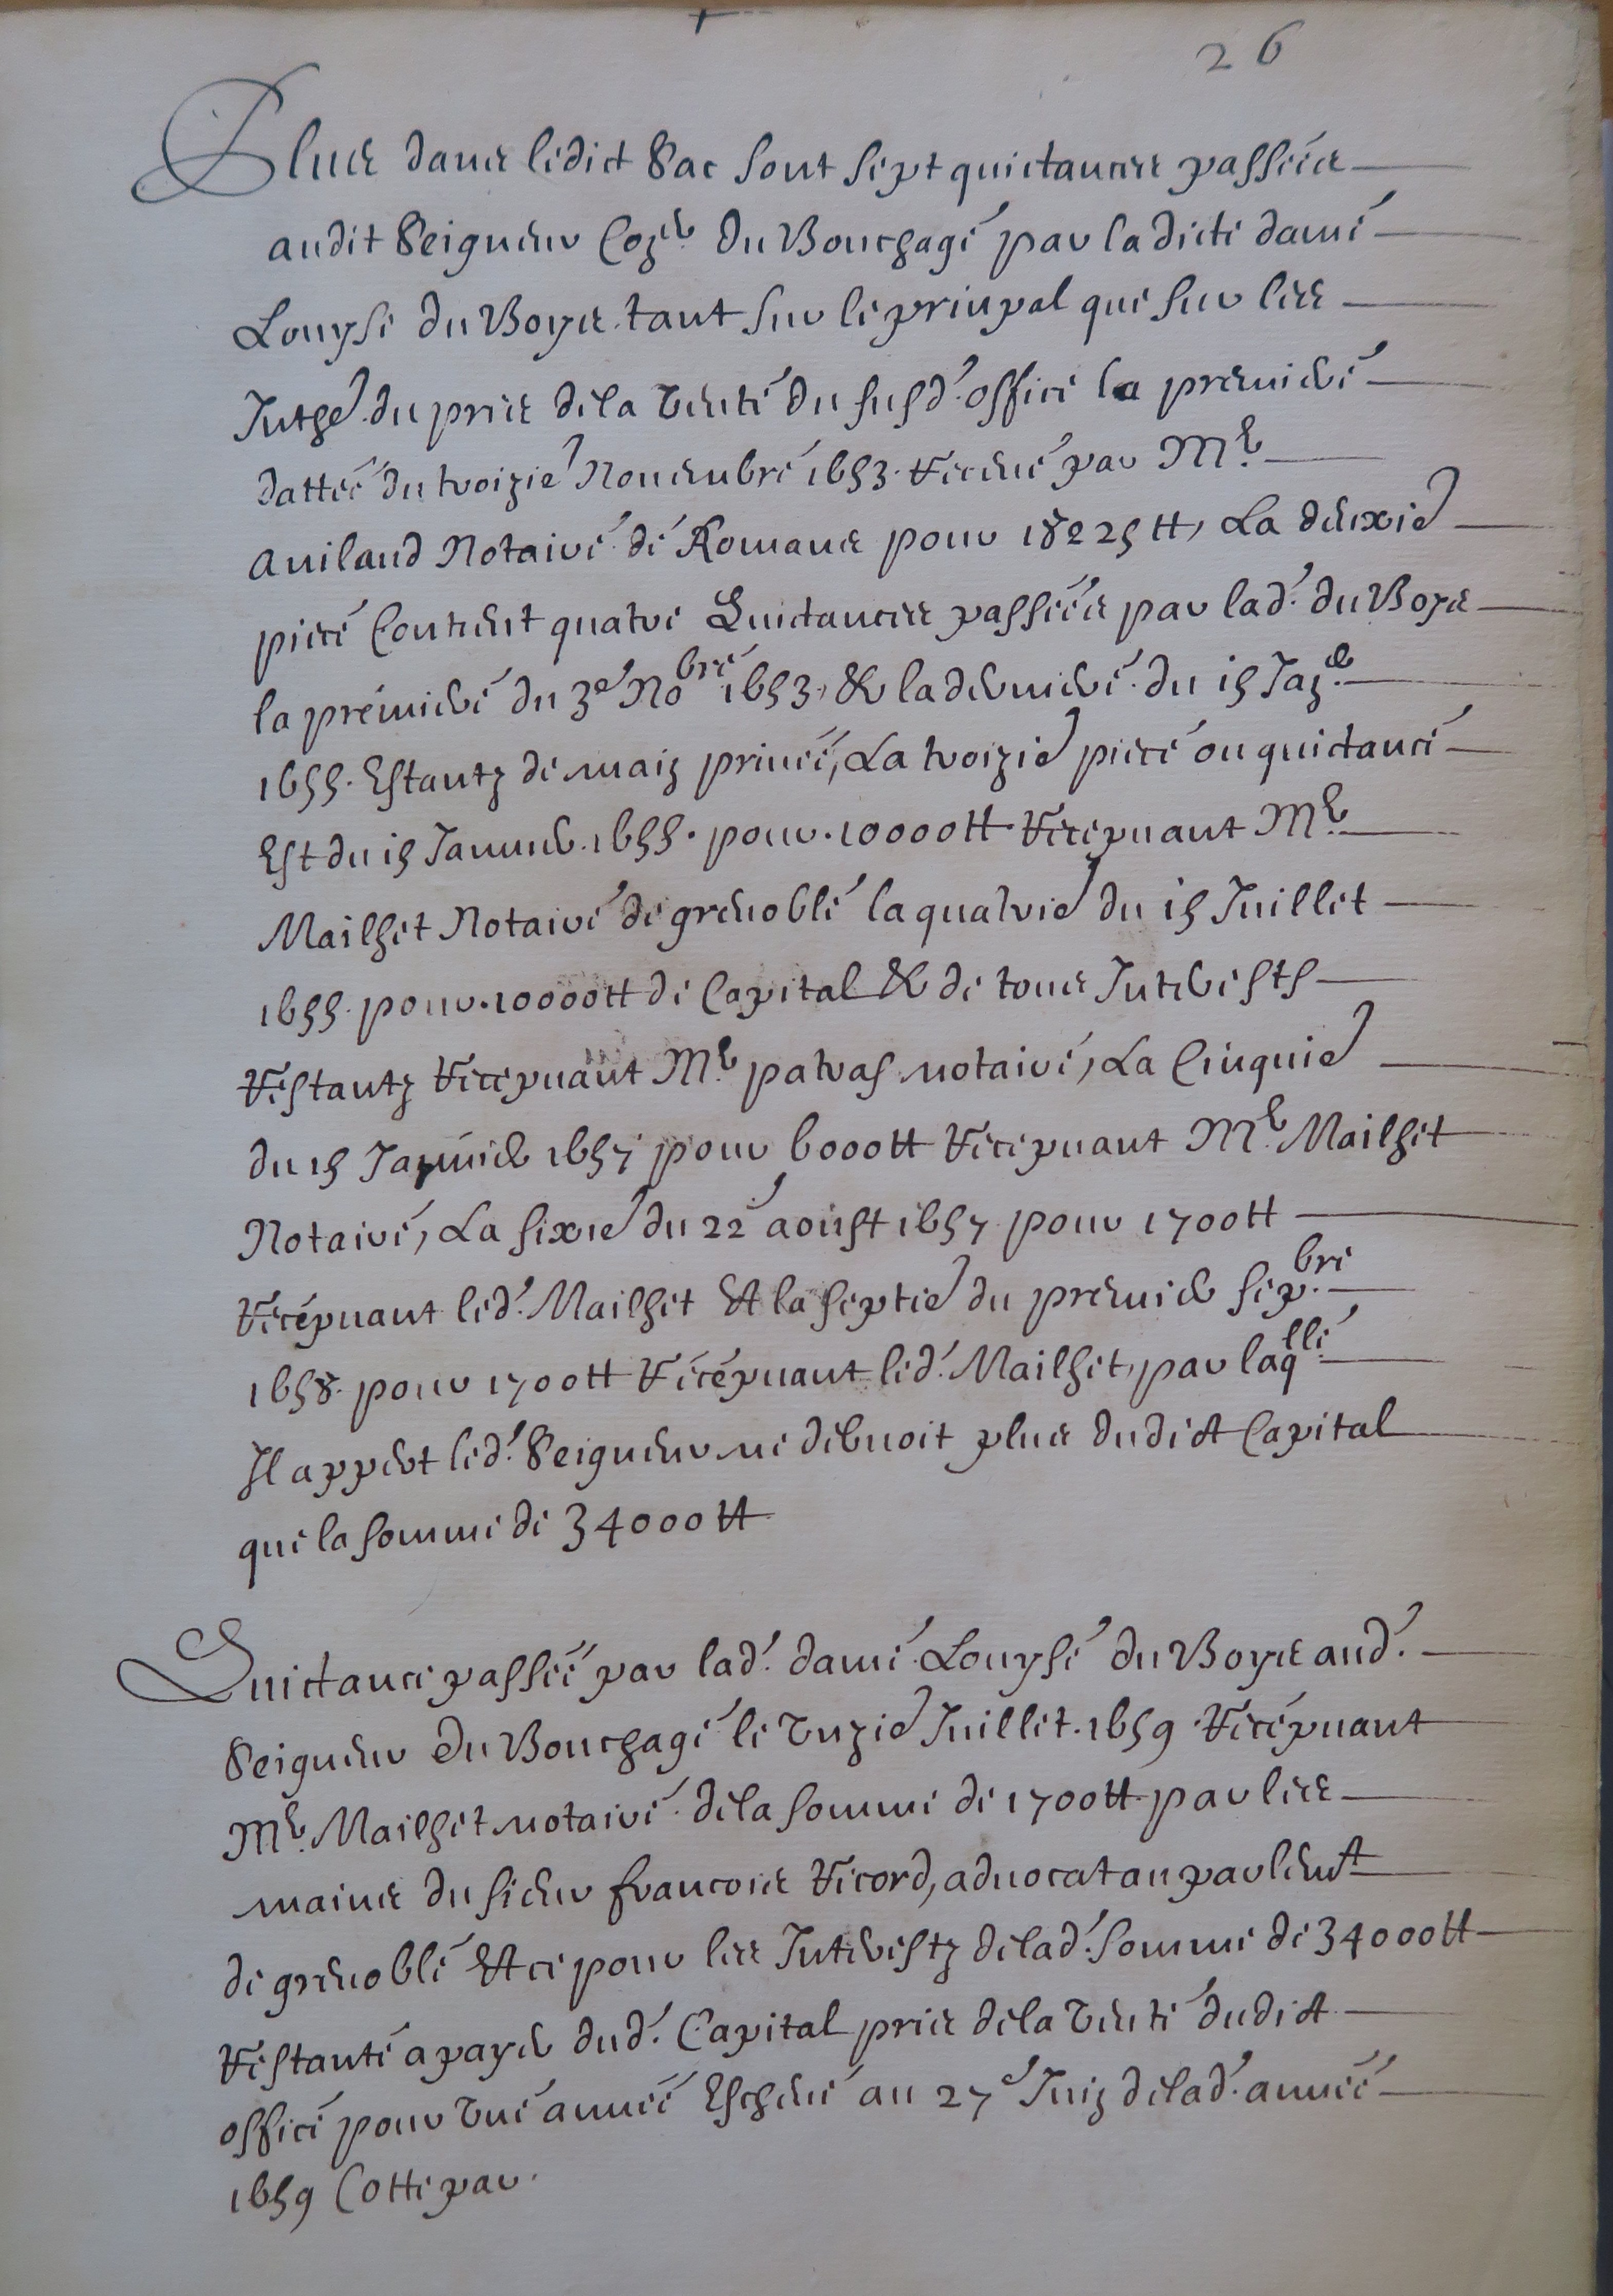 26
Plus dans ledict Sac sont sept quictances passées
audit Seigneur Con.er du Bouchage par la dicte dame
Louyse du Boys tant sur le prinpal que sur les
Inthé. du pris de la vente du susd. office la premiere
dattée du troizie Nouembre 1653. receue par M.e
Auiland Notaire de Romans pour 18225 tt, La deuxie
piece Contient quatre Quictances passées par lad. du Boys
la premiere du 3e Nobre 1653, & la derniere du 15 Jan.er
1655. Estantz de main priuée, La troizie piece ou quictance
Est du 15 Januier. 1655. pour. 10000 tt. recepuant M.e
Mailhet Notaire de grenoble la quatrie du 15 Juillet
1655. pour. 10000 tt de Capital & de tous Interests
restantz recepuant M.e patras notaire, La Cinquie
du 15 Januier 1657 pour 6000 tt recepuant M.e Mailhet
Notaire, La sixie du 22e aoust 1657 pour 1700 tt
recepuant led. Mailhet Et la septie du premier sep.bre
1658. pour 1700 tt recepuant led. Mailhet, par laqlle
Il appert led. Seigneur ne debuoit plus dudict Capital
que la somme de 34000 tt
Quictance passée par lad. dame Louyse du Boys aud.
Seigneur du Bouchage le vnzie Juillet. 1659. recepuant
M.e Mailhet notaire de la somme de 1700 tt par les
mains du sieur francois ricord, aduocat au parlemt
de grenoble Et ce pour les Interestz de lad. somme de 34000 tt
restante a payer dud. Capital pris de la vente dudict
office pour vne année Escheue au 27e Juin de lad. année
1659 Cotte par.